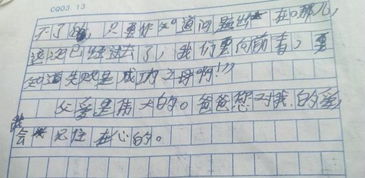 C003 13
不了的，只要你知道问题出在哪儿，
这还已经过去了，我们要向前看，要
知道失败是成功之母啊！”
父爱是伟大的。爸爸您对我的爱，
我会记住在心的。